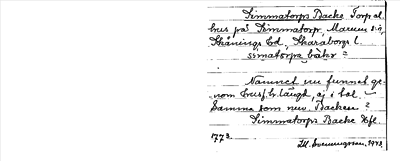 Simmatorps Backe Torp al.
hus på Simmatorp, Marum sn,
Skånings hd, Skaraborgs l.
simatorps bakr =
Namnet nu funnet ge-
nom husf.h. längd, ej i
Samma som nuv. Backen?
Simmatorps Backe Hfl.
1773.
1943.